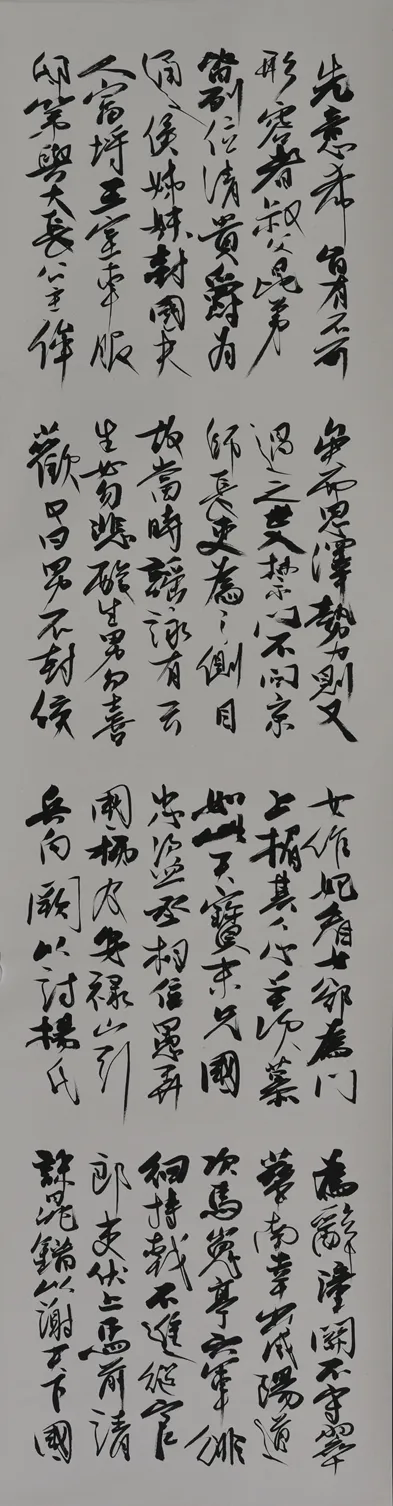 先意希旨有不可
形容者叔父昆弟
皆列位清貴爵為
通侯姊妹封國夫
人富埒王室車服
邸第與大長公主侔
矣而恩澤勢力則又
過之出入禁門不問京
師長吏為之側目
故當時謠詠有云
生女勿悲酸生男勿喜
歡又曰男不封侯
女作妃看女卻為門
上楣其人心羨慕
如此天寶末兄國
忠盜丞相位愚弄
國柄及安祿山引
兵向闕以討楊氏
為辭潼關不守翠
華南幸出咸陽道
次馬嵬亭六軍徘
徊持戟不進從官
郎吏伏上馬前請
誅晁錯以謝天下國